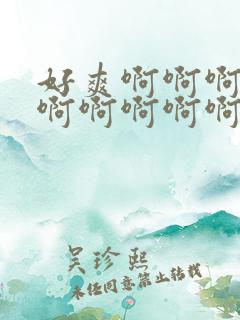 好爽啊啊啊
啊啊啊啊啊
吴珍熙
未经同意禁止转载